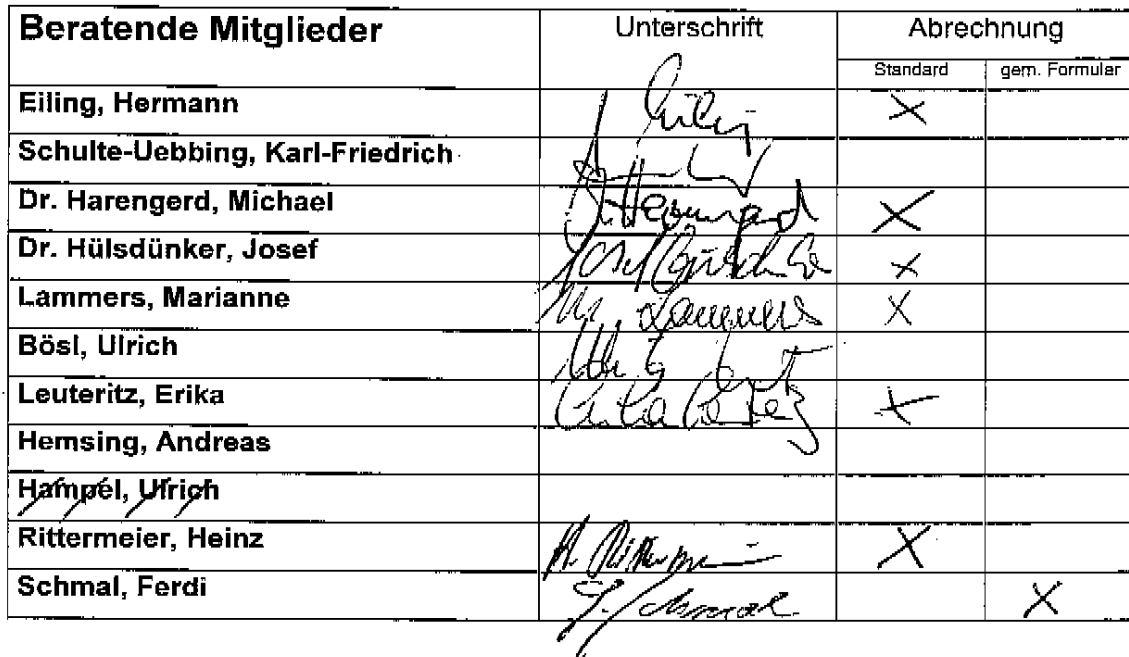 Beratende Mitglieder Unterschrift Abrechnung
Standard gem. Formular
Eiling, Hermann Eiling X
Schulte-Uebbing, Karl-Friedrich
Dr. Harengerd, Michael Harengerd X
Dr. Hülsdünker, Josef Josef X
Lammers, Marianne M. Lammers X
Bösl, Ulrich
Leuteritz, Erika Erika X
Hemsing, Andreas
Hampel, Ulrich
Rittermeier, Heinz H. Ritterm X
Schmal, Ferdi F. Schmal X